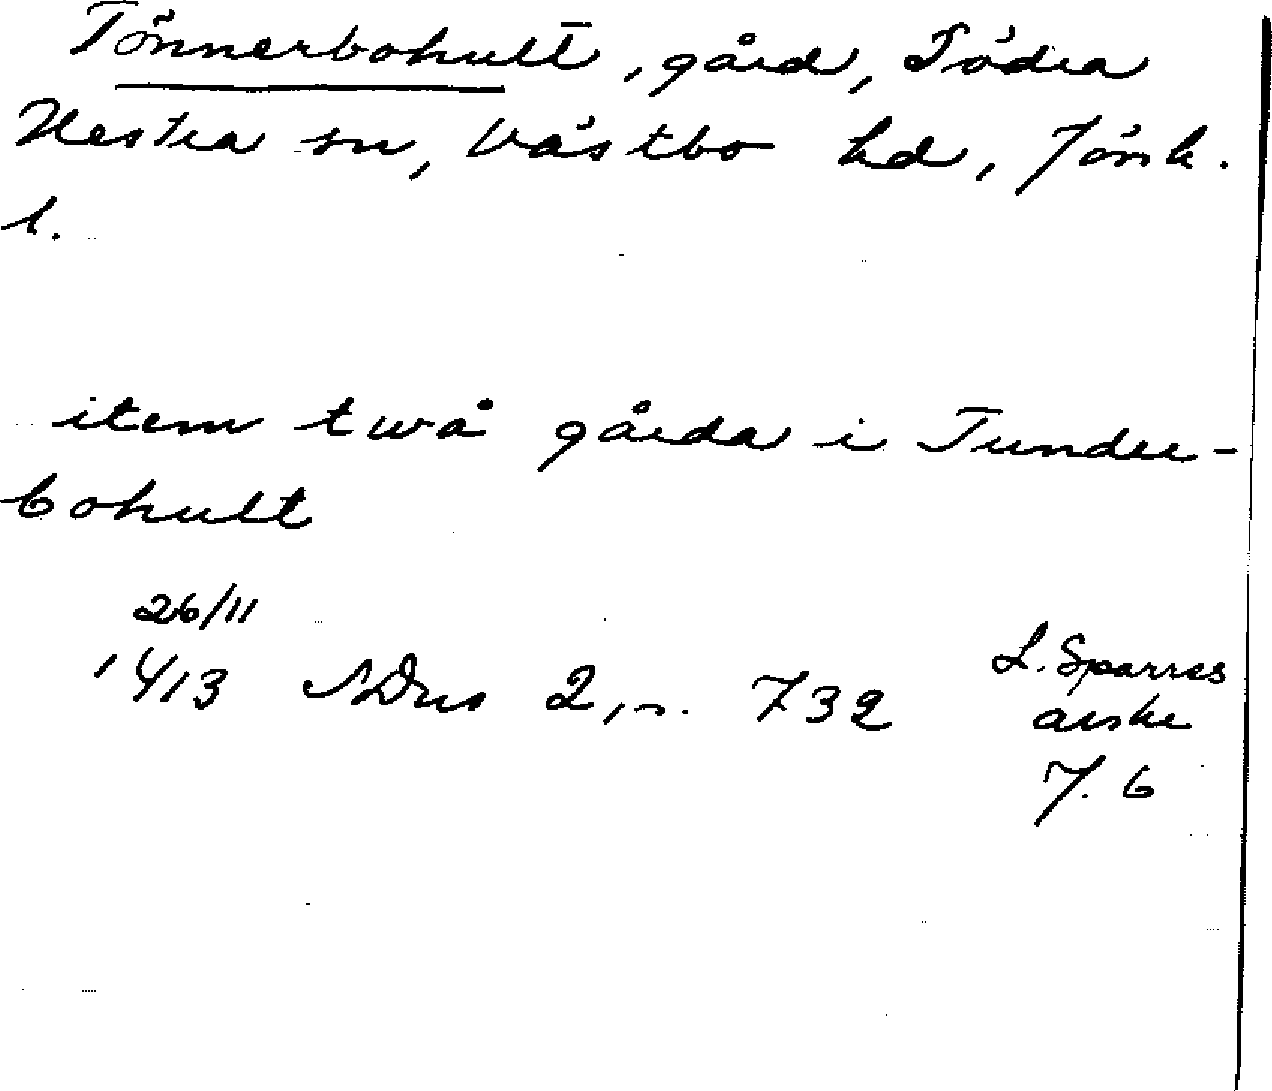 Tönnerbohult, gård, Södra
Hestra sn, Västbo hd, Jönk.
l.
item twå gårda i Tunder-
bohult
26/11
1413 SDns 2, n. 732
L. Sparres
avskr
7. 6